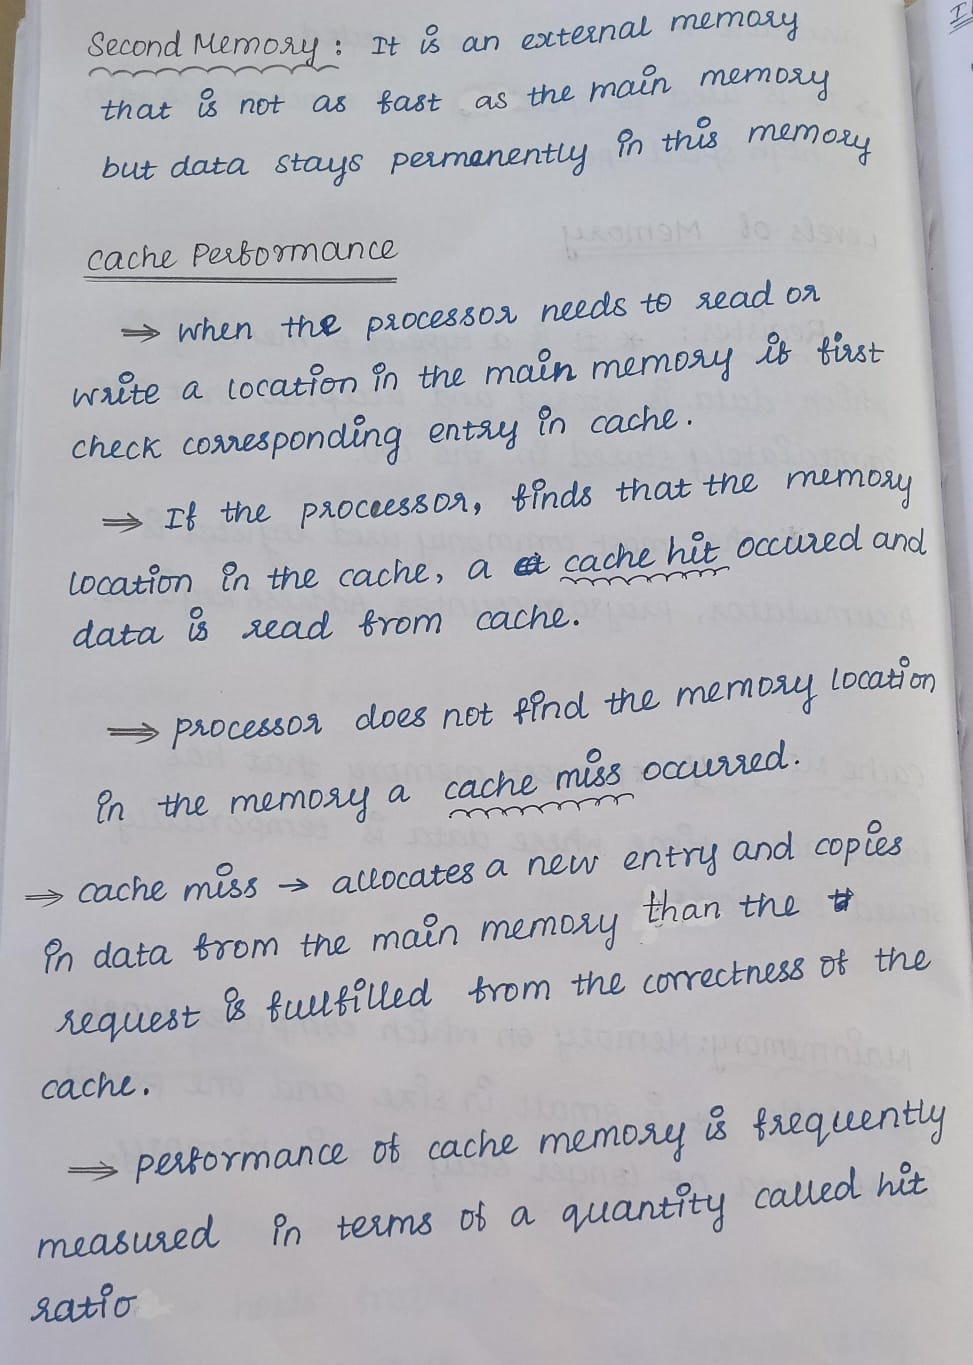 Second Memory : It is an external memory
that is not as fast as the main memory
but data stays permenently in this memory
cache Performance
⇒ when the processor needs to read or
write a location in the main memory it first
check corresponding entry in cache.
⇒ If the processor, finds that the memory
location in the cache, a cache hit occured and
data is read from cache.
⇒ processor does not find the memory location
in the memory a cache miss occurred.
⇒ cache miss → allocates a new entry and copies
in data from the main memory than the
request is fullfilled from the correctness of the
cache.
⇒ performance of cache memory is frequently
measured in terms of a quantity called hit
ratio